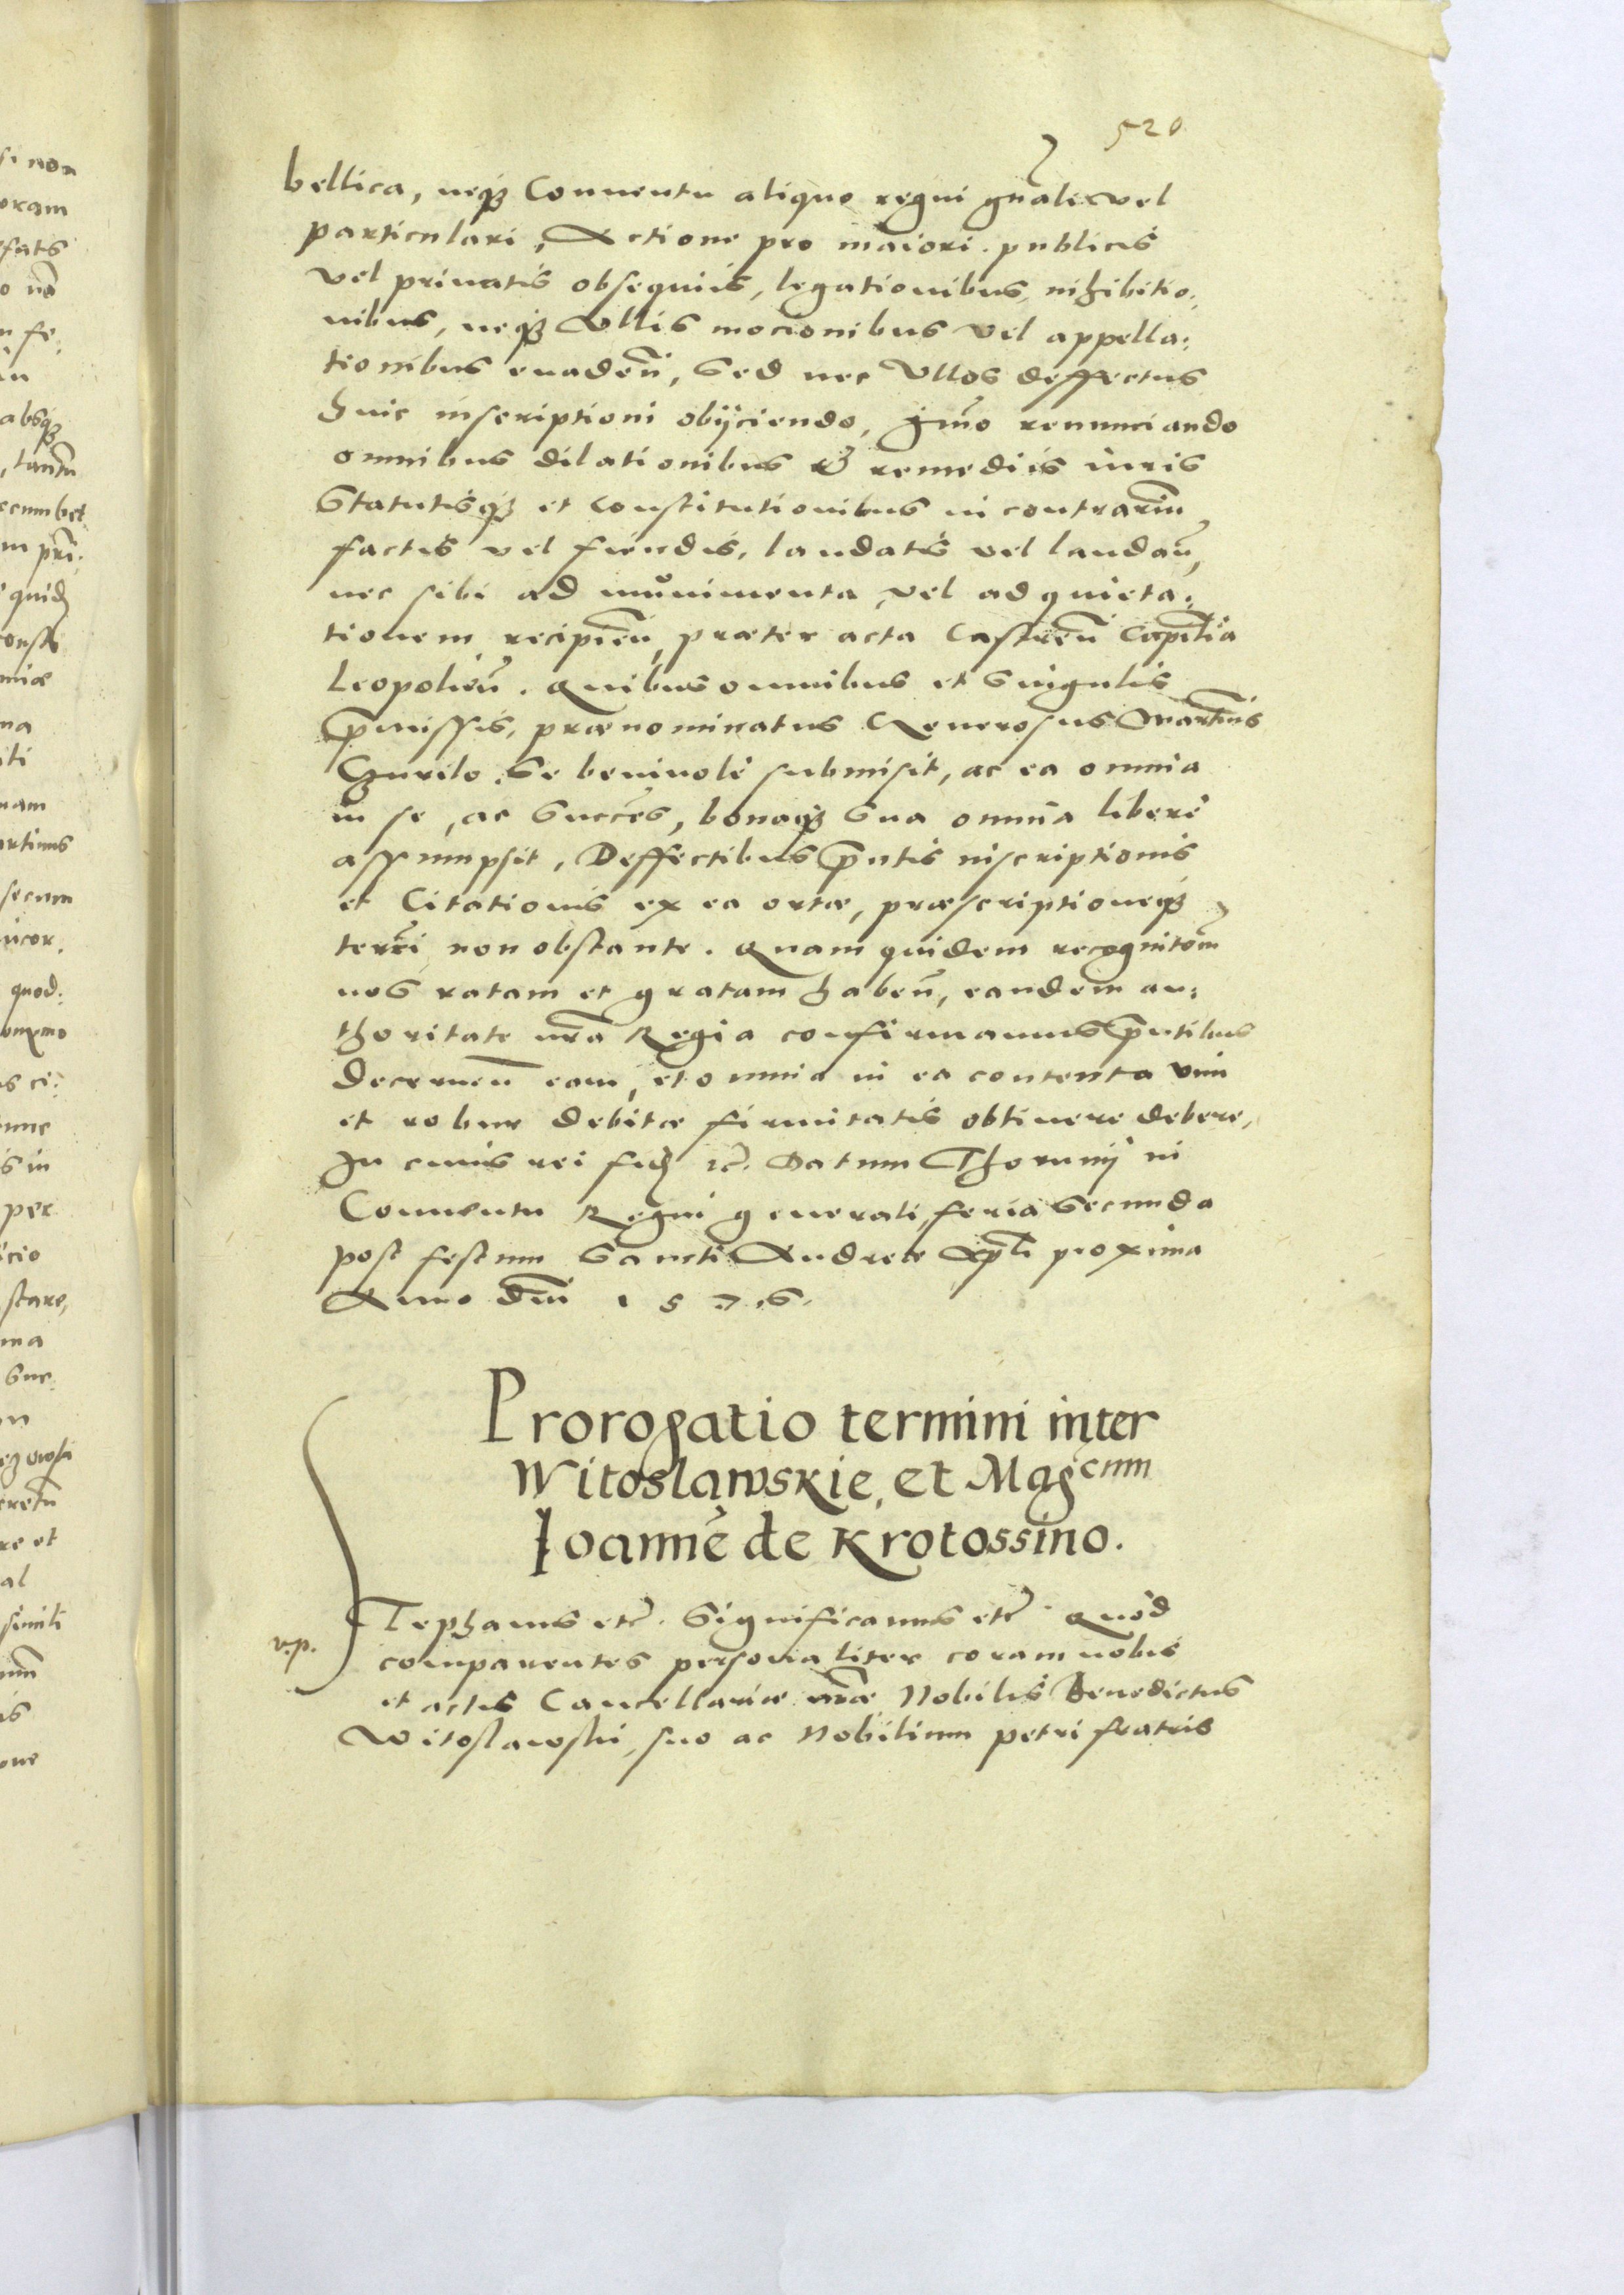 520
bellica, neqꝫ Conuentu aliquo regni gn̄ali vel
particulari, Actione pro maiori. publicis
vel priuatis obsequiis, legationibus, inhibitio:
nibus, neqꝫ vllis mocionibus vel appella:
tionibus euaden̄, Sed nec Vllos deffectus
huic inscriptioni obijciendo, Im̄o renunciando
omnibus dilationibus & remediis iuris
Statutisqꝫ et Constitutionibus in contrariū
factis vel fiendis, laudatis vel laudan̄,
nec sibi ad munimenta, vel ad quieta:
tionem recipien̄, præter acta Castren̄ Capitл̄ia
Leopolien̄. Quibus omnibus et Singulis
p̄missis, prænominatus Generosus Martinus
Gurilo, Se beniuolè submisit, ac ea omnia
in se, ac Succ̄es, bonaqꝫ Sua omnia liberè
assumpsit, Deffectibus p̄ntis inscriptionis
et Citationis ex ea ortæ, præscriptioneqꝫ
terr̄i non obstante. Quam quidem recognitōem
nos ratam et gratam haben̄, eandem au:
thoritate nr̄a Regia confirmamus p̄ntibus
Decernen̄ eam, et omnia in ea contenta vim
et robur debitæ firmitatis obtinere debere,
In cuius rei fid̄ etc. Datum Thorunij in
Conuentu Regni generali, feria Secunda
post festum Sancti Andreæ Apl̄i proxima
Anno Dn̄i 1576.
Prorogatio termini inter
Witoslawskie, et Mag^cum
Ioannē de Krotossino.
Stephanus etc. Significamus etc. Quòd
v.p.
comparentes personaliter coram nobis
et actis Cancellariæ nr̄æ Nobilis Benedictus
Witoslawski, suo ac Nobilium Petri fratris